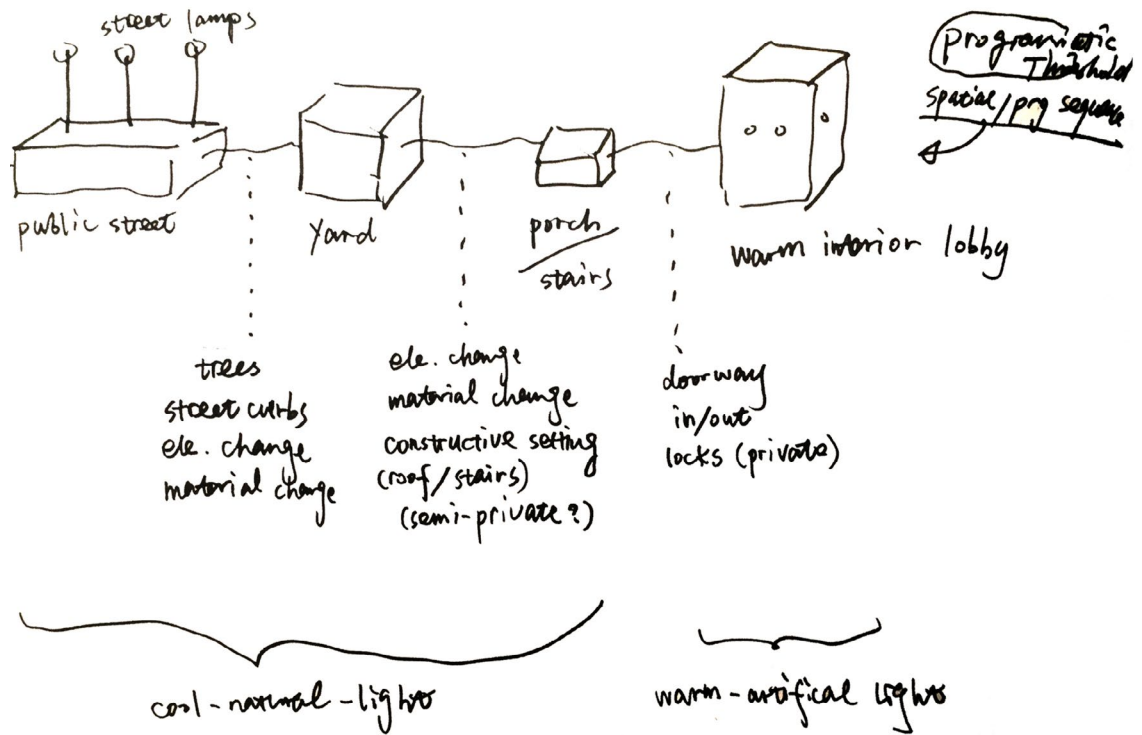 street lamps
programatic
Threshold
spatial/prg sequence
public street
yard
porch
stairs
warm interior lobby
trees
street curbs
ele. change
material change
ele. change
material change
constructive setting
(roof/stairs)
(semi-private?)
doorway
in/out
locks (private)
cool-natural-lights
warm-artifical lights